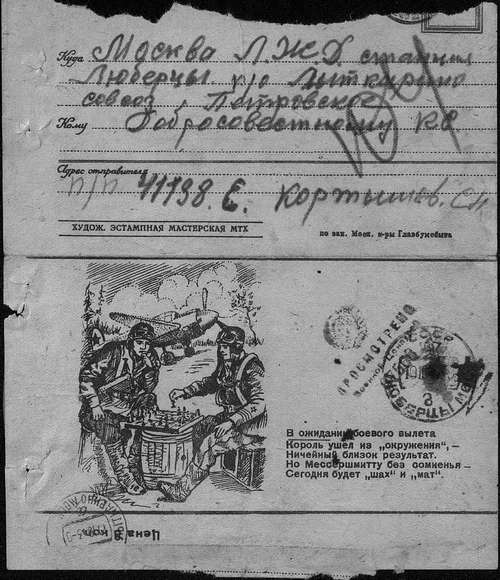 Куда Москва Л.Ж.Д. станция
Люберцы п/о Лыткарино
совхоз Петровское
Кому Добросовестному К С
Адрес отправителя
п/п 41198. Е. Кортышев. С.И.
ХУДОЖ. ЭСТАМПНАЯ МАСТЕРСКАЯ МТХ
по зак. Моск. к-ры Главбумсбыта
ПРОСМОТРЕНО
СССР
ЛЮБЕРЦЫ
В ожидании боевого вылета
Король ушел из „окружения“, —
Ничейный близок результат.
Но Мессершмитту без сомненья —
Сегодня будет „шах“ и „мат“.
Цена коп.